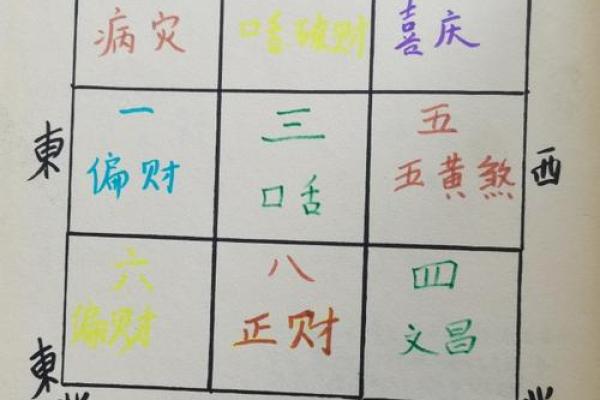 病灾 口舌破财 喜庆
一 三 五
東 偏财 口舌 五黄煞 西
六 八 四
偏财 正财 文昌
東